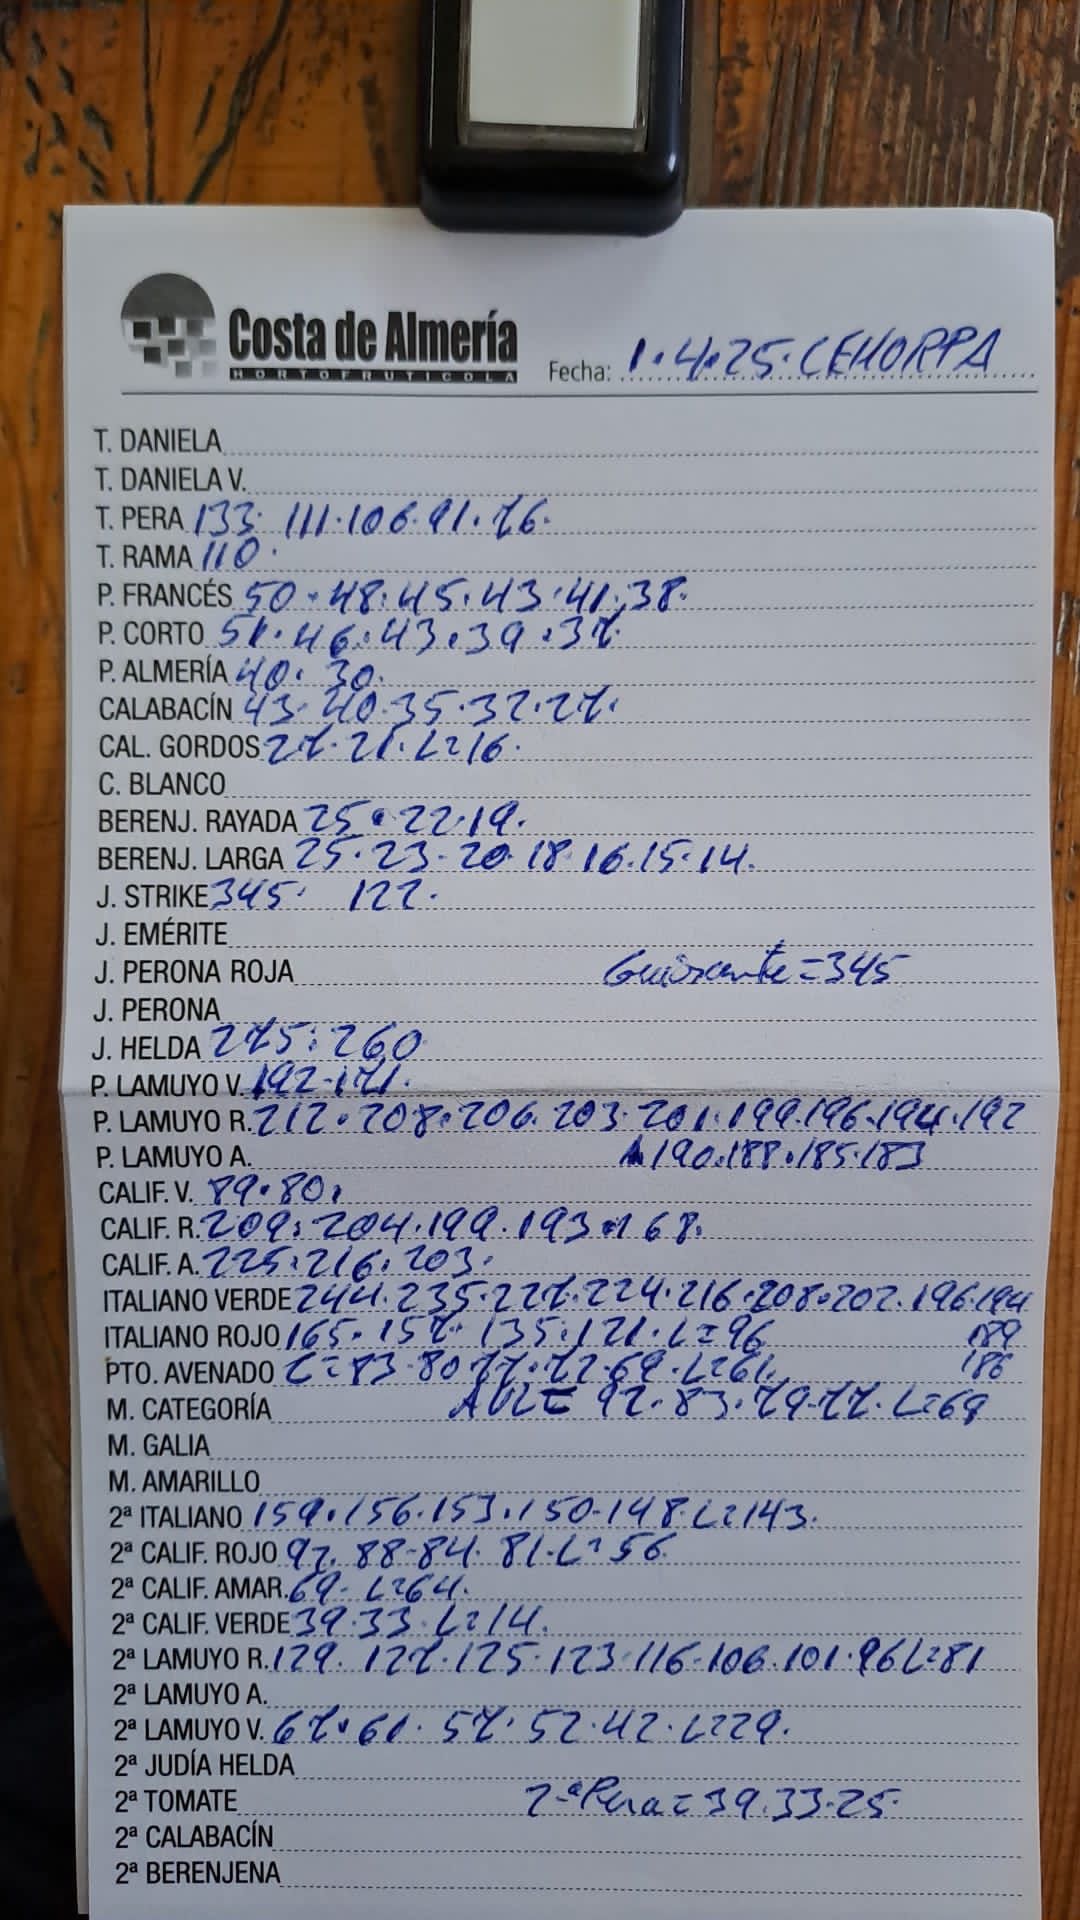 Costa de Almería
HORTOFRUTICOLA
Fecha: 1.4.25.CEHORPA
T. DANIELA
T. DANIELA V.
T. PERA 133. 111.106.91.76.
T. RAMA 110.
P. FRANCÉS 50.48.45.43.41.38.
P. CORTO 51.46.43.39.37.
P. ALMERÍA 40.30.
CALABACÍN 43.40.35.32.27.
CAL. GORDOS 27.21.L=16.
C. BLANCO
BERENJ. RAYADA 25.22.19.
BERENJ. LARGA 25.23.20.18.16.15.14.
J. STRIKE 345. 122.
J. EMÉRITE
J. PERONA ROJA Guisante=345
J. PERONA
J. HELDA 275.260
P. LAMUYO V. 192.171.
P. LAMUYO R. 212.208.206.203.201.199.196.194.192
P. LAMUYO A. 190.188.185.183
CALIF. V. 89.80.
CALIF. R. 209.204.199.193.168.
CALIF. A. 225.216.203.
ITALIANO VERDE 244.235.227.224.216.208.202.196.194
ITALIANO ROJO 165.157.135.121.L=96 189
PTO. AVENADO C=83.80.77.72.69.L=61. 186
M. CATEGORÍA 92.83.79.77.L=69
M. GALIA
M. AMARILLO
2ª ITALIANO 159.156.153.150.148.L=143.
2ª CALIF. ROJO 92.88.84.81.L=56
2ª CALIF. AMAR. 69.L=64.
2ª CALIF. VERDE 39.33.L=14.
2ª LAMUYO R. 129.127.125.123.116.106.101.96 L=81
2ª LAMUYO A.
2ª LAMUYO V. 67.61.57.52.42.L=29.
2ª JUDÍA HELDA
2ª TOMATE 2ª Pera=39.33.25.
2ª CALABACÍN
2ª BERENJENA